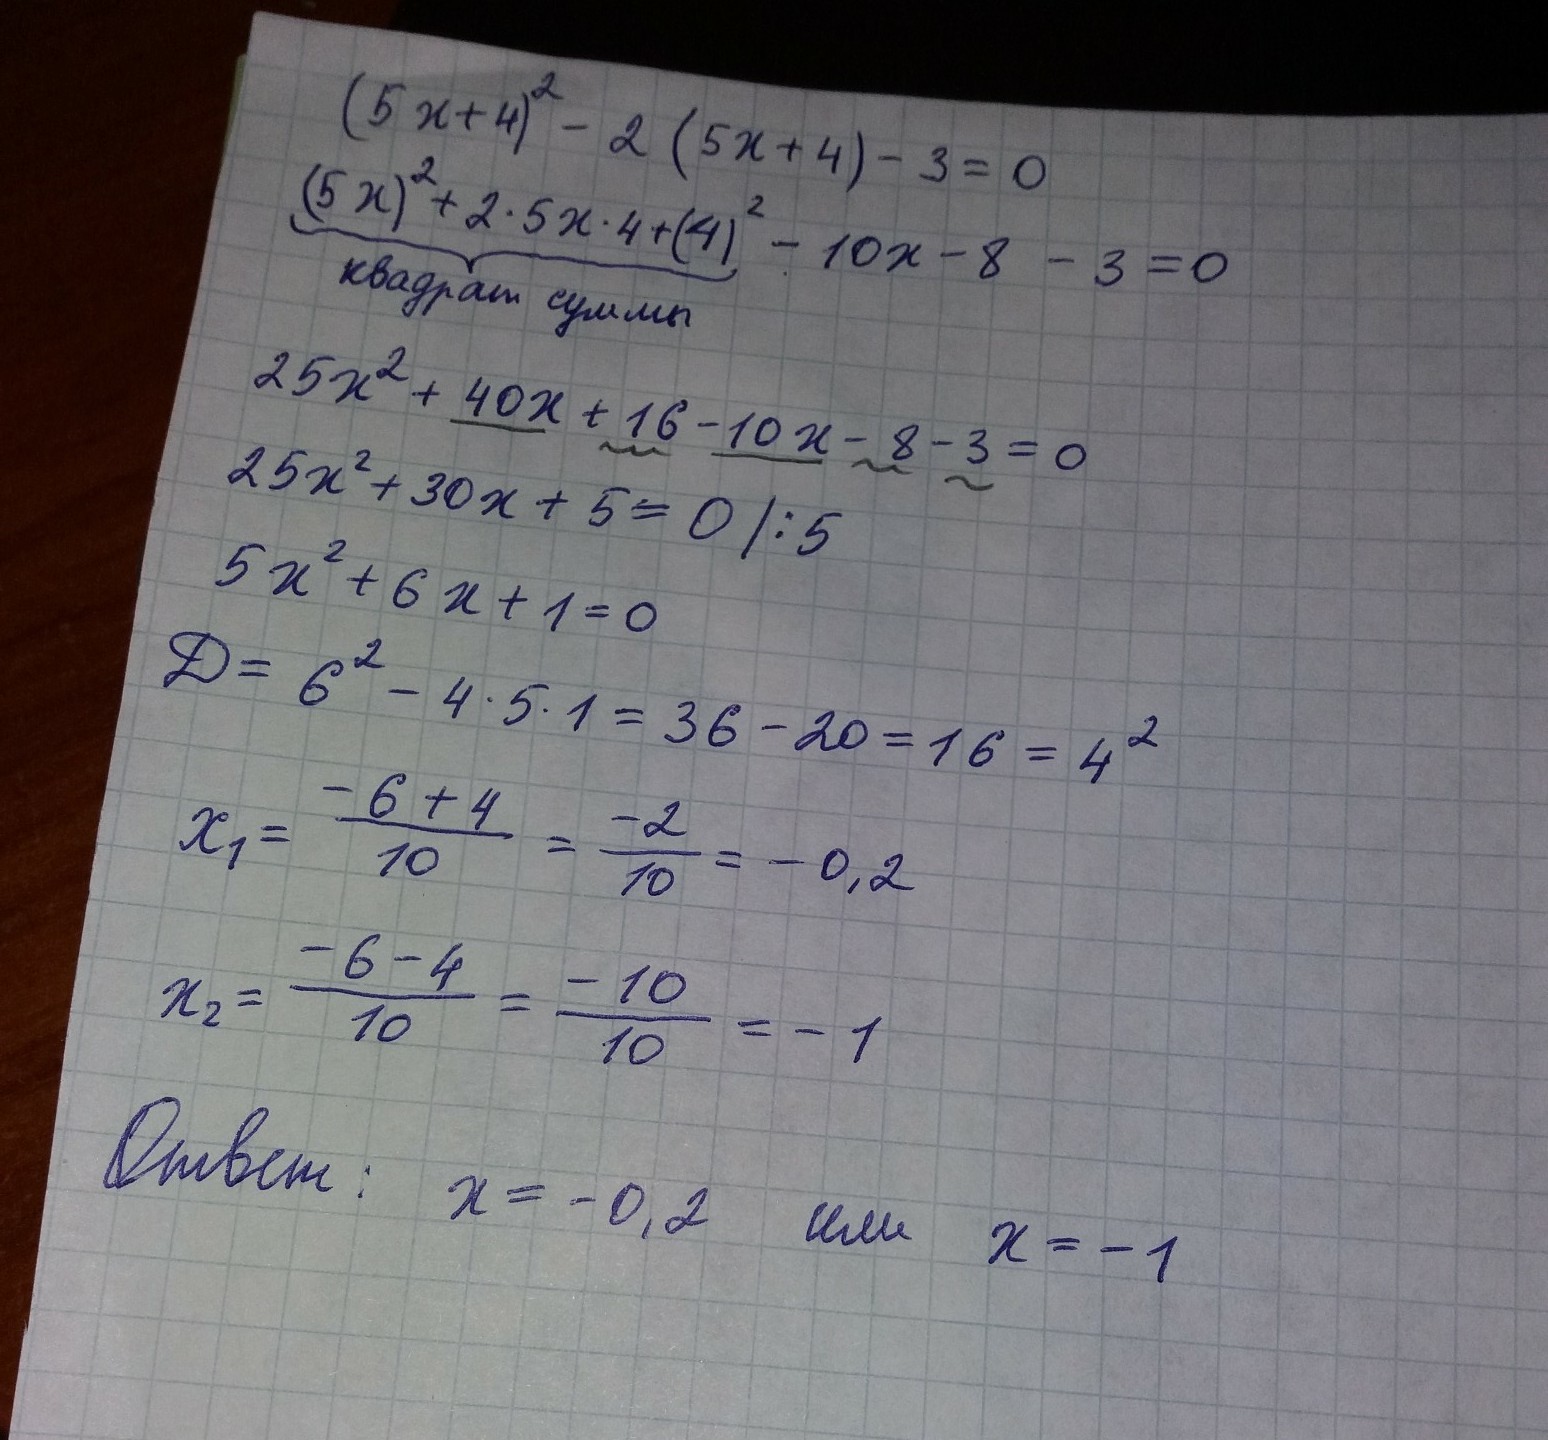 (5x+4)² - 2(5x+4) - 3 = 0
(5x)² + 2·5x·4 + (4)² - 10x - 8 - 3 = 0
квадрат суммы
25x² + 40x + 16 - 10x - 8 - 3 = 0
25x² + 30x + 5 = 0 /:5
5x² + 6x + 1 = 0
Д = 6² - 4·5·1 = 36 - 20 = 16 = 4²
x₁ = (-6+4)/10 = -2/10 = -0,2
x₂ = (-6-4)/10 = -10/10 = -1
Ответ: x = -0,2 или x = -1